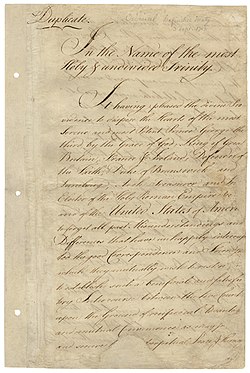 Duplicate.
In the Name of the most
Holy & undivided Trinity.
It having pleased the Divine Pro
vidence to dispose the Hearts of the most
Serene and most Potent Prince George the
third, by the Grace of God, King of Great
Britain, France & Ireland, Defender of
the Faith, Duke of Brunswick and
Luneburg, Arch Treasurer and
Elector of the Holy Roman Empire &c. and
of the United States of America
to forget all past Misunderstandings and
Differences that have unhappily interrupted
the good Correspondence and Friendship
which they mutually wish to restore; and
to establish such a beneficial and satisfac
tory Intercourse between the two Countries
upon the Ground of reciprocal Advantages
and mutual Convenience as may
and secure perpetual Peace &